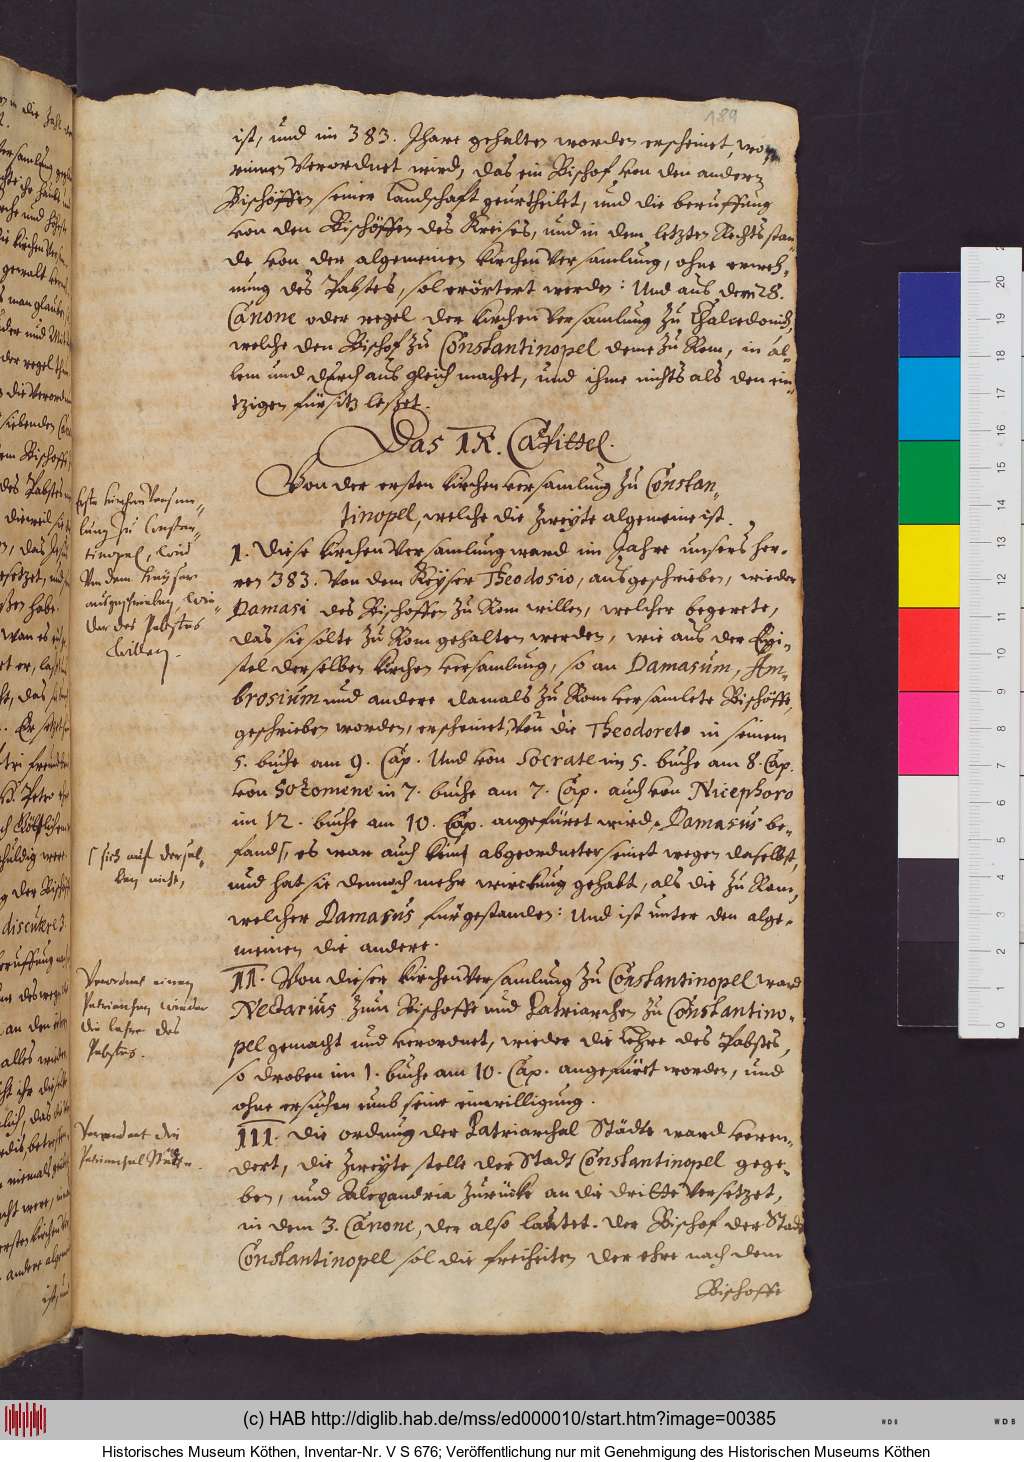 189
ist, und im 383. Jhare gehalten worden erscheinet, wo
rinnen verordnet wird, das ein Bischof von den andern
Bischöffen seiner Landschaft geurtheilet, und die beruffung
von den Bischöffen des Kreises, und in dem letzten Rechtsstan-
de von der algemeinen Kirchen versamlung, ohne erweh-
nung des Pabstes, sol erörtert werden: Und aus dem 28.
Canone oder regel der Kirchen versamlung zu Chalcedonien,
welche den Bischof zu Constantinopel deme zu Rom, in al-
lem und durch aus gleich machet, und ihme nichts als den ein-
tzigen fürsitz lesset.
Das IX. Capittel.
Von der ersten Kirchen versamlung zu Constan-
tinopel, welche die Zweyte algemeine ist.
Erste Kirchen Versam-
lung zu Constan-
tinopel, wird
von dem Keyser
ausgeschrieben, wie-
der des Pabstes
willen.
1. Diese Kirchen Versamlung ward im Jahre unsers her-
ren 383. Von dem Keyser Theodosio, ausgeschrieben, wieder
Damasi des Bischoffen zu Rom willen, welcher begerete,
das sie solte zu Rom gehalten werden, wie aus der Epi-
stel derselben Kirchen versamlung, so an Damasum, Am-
brosium und andere damals zu Rom versamlete Bischöffe,
geschrieben worden, erscheinet, von die Theodoreto in seinem
5. buche am 9. Cap. Und von Socrate im 5. buche am 8. Cap.
von Sozomene in 7. buche am 7. Cap. auch von Nicephoro
im 12. buche am 10. Cap. angefüret wird. Damasus be-
fand, es war auch keiner abgeordneter seinet wegen daselbst,
sich auf dersel-
ben nicht,
und hat sie dennoch mehr wirckung gehabt, als die zu Rom,
welcher Damasus fürgestanden: Und ist unter den alge-
meinen die andere.
Verordnet einen
Patriarchen wieder
die lehre des
Pabstes.
II. Von dieser Kirchen Versamlung zu Constantinopel ward
Nectarius zum Bischoffe und Patriarchen zu Constantino-
pel gemacht und verordnet, wieder die Lehre des Pabstes,
so droben im 1. buche am 10. Cap. angefüret worden, und
ohne ersuchen umb seine einwilligung.
Verendert die
Patriarchal Städte.
III. Die ordnung der Patriarchal Städte ward veren-
dert, die Zweyte stelle der Stadt Constantinopel gege-
ben, und Alexandria zurücke an die dritte versetzet,
in dem 3. Canone, der also lautet. Der Bischof der Stadt
Constantinopel sol die freiheiten der ehre nach dem
Bischoffe
(c) HAB http://diglib.hab.de/mss/ed000010/start.htm?image=00385
Historisches Museum Köthen, Inventar-Nr. V S 676; Veröffentlichung nur mit Genehmigung des Historischen Museums Köthen